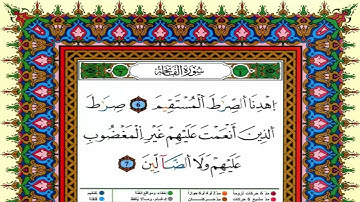 سُورَةُ الْفَاتِحَةِ
اهْدِنَا الصِّرَٰطَ الْمُسْتَقِيمَ ٦ صِرَٰطَ
الَّذِينَ أَنْعَمْتَ عَلَيْهِمْ غَيْرِ الْمَغْضُوبِ
عَلَيْهِمْ وَلَا الضَّآلِّينَ ٧